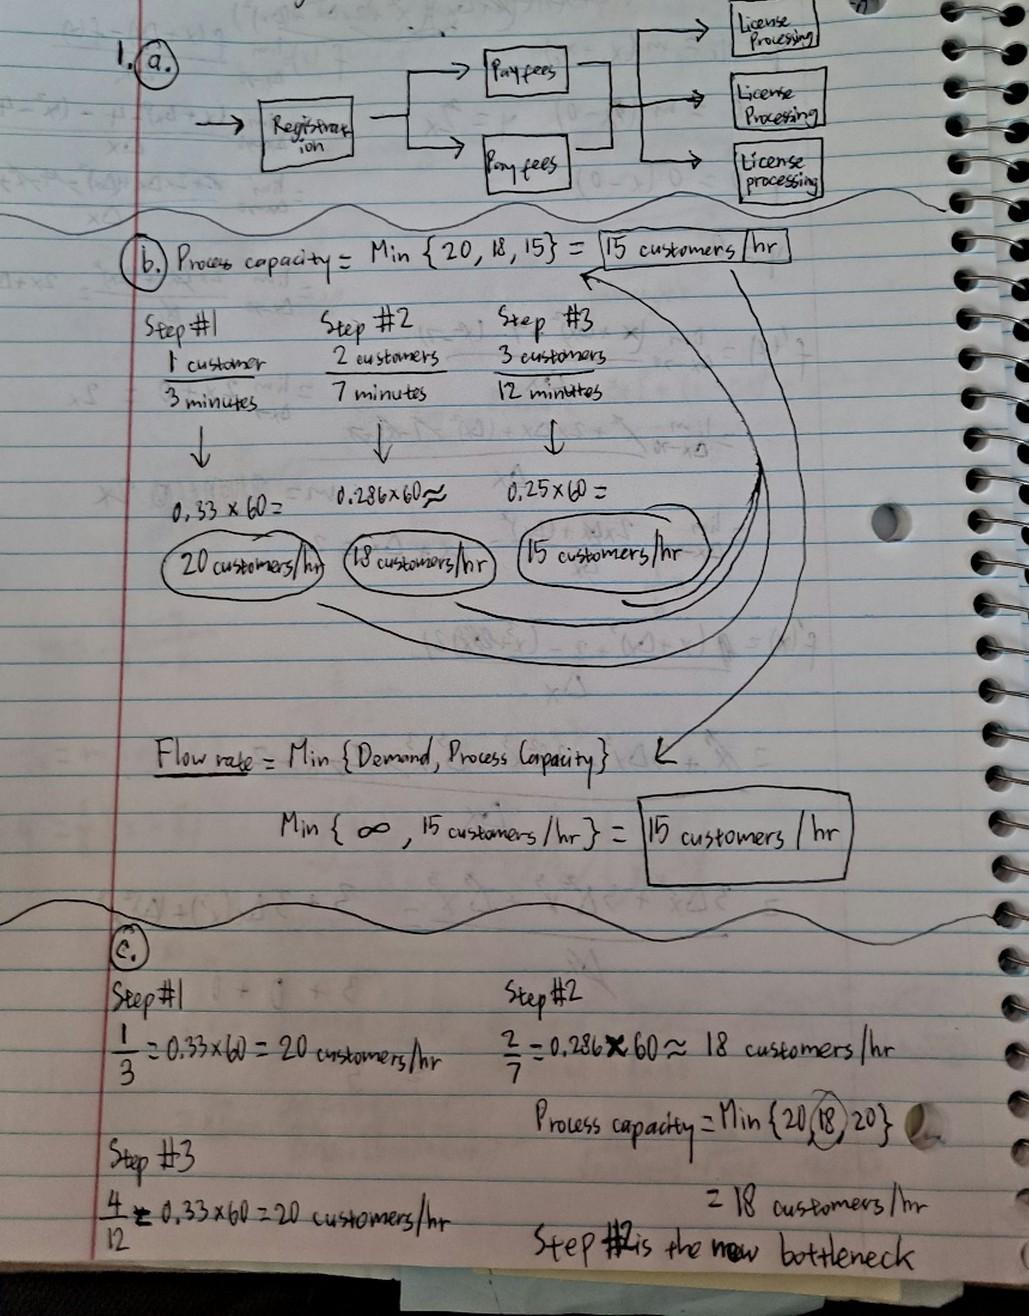 1. a.
Registrat
ion
Pay fees
Pay fees
License
Processing
License
Processing
License
processing
b. Process capacity = Min {20, 18, 15} = 15 customers/hr
Step #1 Step #2 Step #3
1 customer 2 customers 3 customers
3 minutes 7 minutes 12 minutes
0.33 × 60 = 0.286×60 ≈ 0.25×60 =
20 customers/hr 18 customers/hr 15 customers/hr
Flow rate = Min {Demand, Process Capacity}
Min { ∞, 15 customers/hr } = 15 customers / hr
c.
Step #1 Step #2
1/3 = 0.33×60 = 20 customers/hr 2/7 = 0.286×60 ≈ 18 customers/hr
Process capacity = Min {20, 18, 20}
Step #3
4/12 = 0.33×60 = 20 customers/hr = 18 customers/hr
Step #2 is the new bottleneck